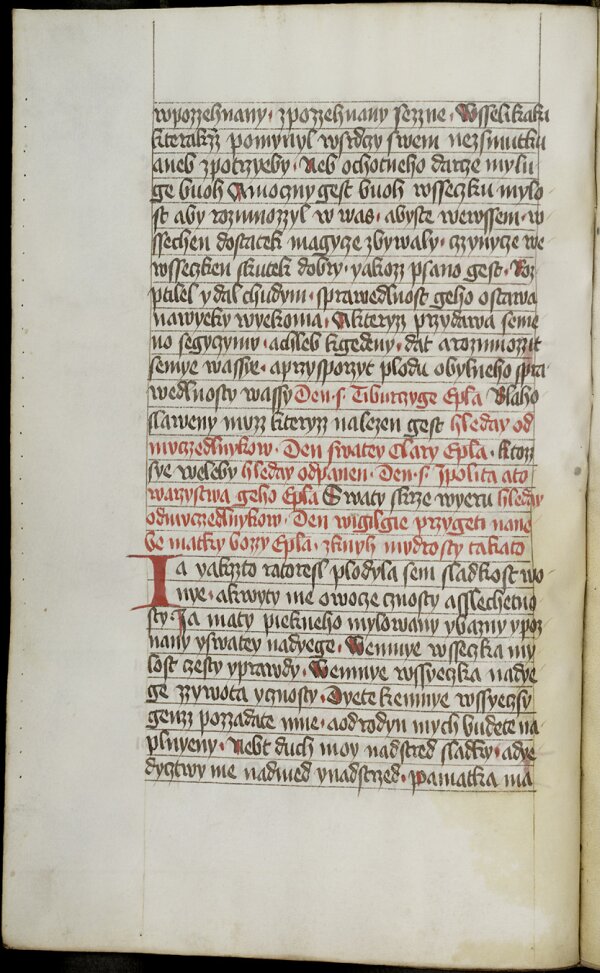 wpozzehnany · zpozzehnany sezzne · Wsselikaku
kterakzz pomynyl wsrdczy swem nezsmutku
aneb zpotrzyeby · Neb ochotneho darcze mylu
ge buoh Amoczny gest buoh wsseczku mylo
st aby rozmnozzyl w was · abyste wewssem · w
ssechen dostatek magycze zbywaly · czzynycze we
wsseczken skutek dobry · yakozz psano gest · Roz
ptilel y dal chudym · sprawedlnost geho ostawa
nawyeky wyekoma · Akteryz przydawa seme
no segyczymu · achleb kgedeny · dat arozmnozzit
semye wassye · aprzysporzyt plodu obylneho spra
wedlnosty wassy Den · s · Tiburczyge Epla Blaho
slaweny muzz kteryzz nalezen gest hleday od
muczedlnykow · Den swatey Clary Epla · ktozz
sye weleby hleday odpanen · Den · s · Ipolita ato
warzystwa geho Epla Swaty skrze wyeru hleday
odmuczedlnykow · Den wigilgie przygeti nane
be matky bozzy Epla · zknyh mudrosty takato
Ia yakzzto ratoresl plodyla sem sladkost wo
nye · akwyty me owocze cznosty asslechetno
sty Ia maty piekneho mylowany ybazny ypoz
nany yswatey nadyege · Wemnye wsseczka my
lost czesty yprawdy · Wemnye wssyeczka nadye
ge zzywota ycznosty · Dyete kemnye wssyeczsy
genzz pozzadate mne · aodrodyn mych budete na
plnyeny · Nebt duch moy nadstred sladky · adye
dycztwy me nadmed ynadstrzed · pamatka ma